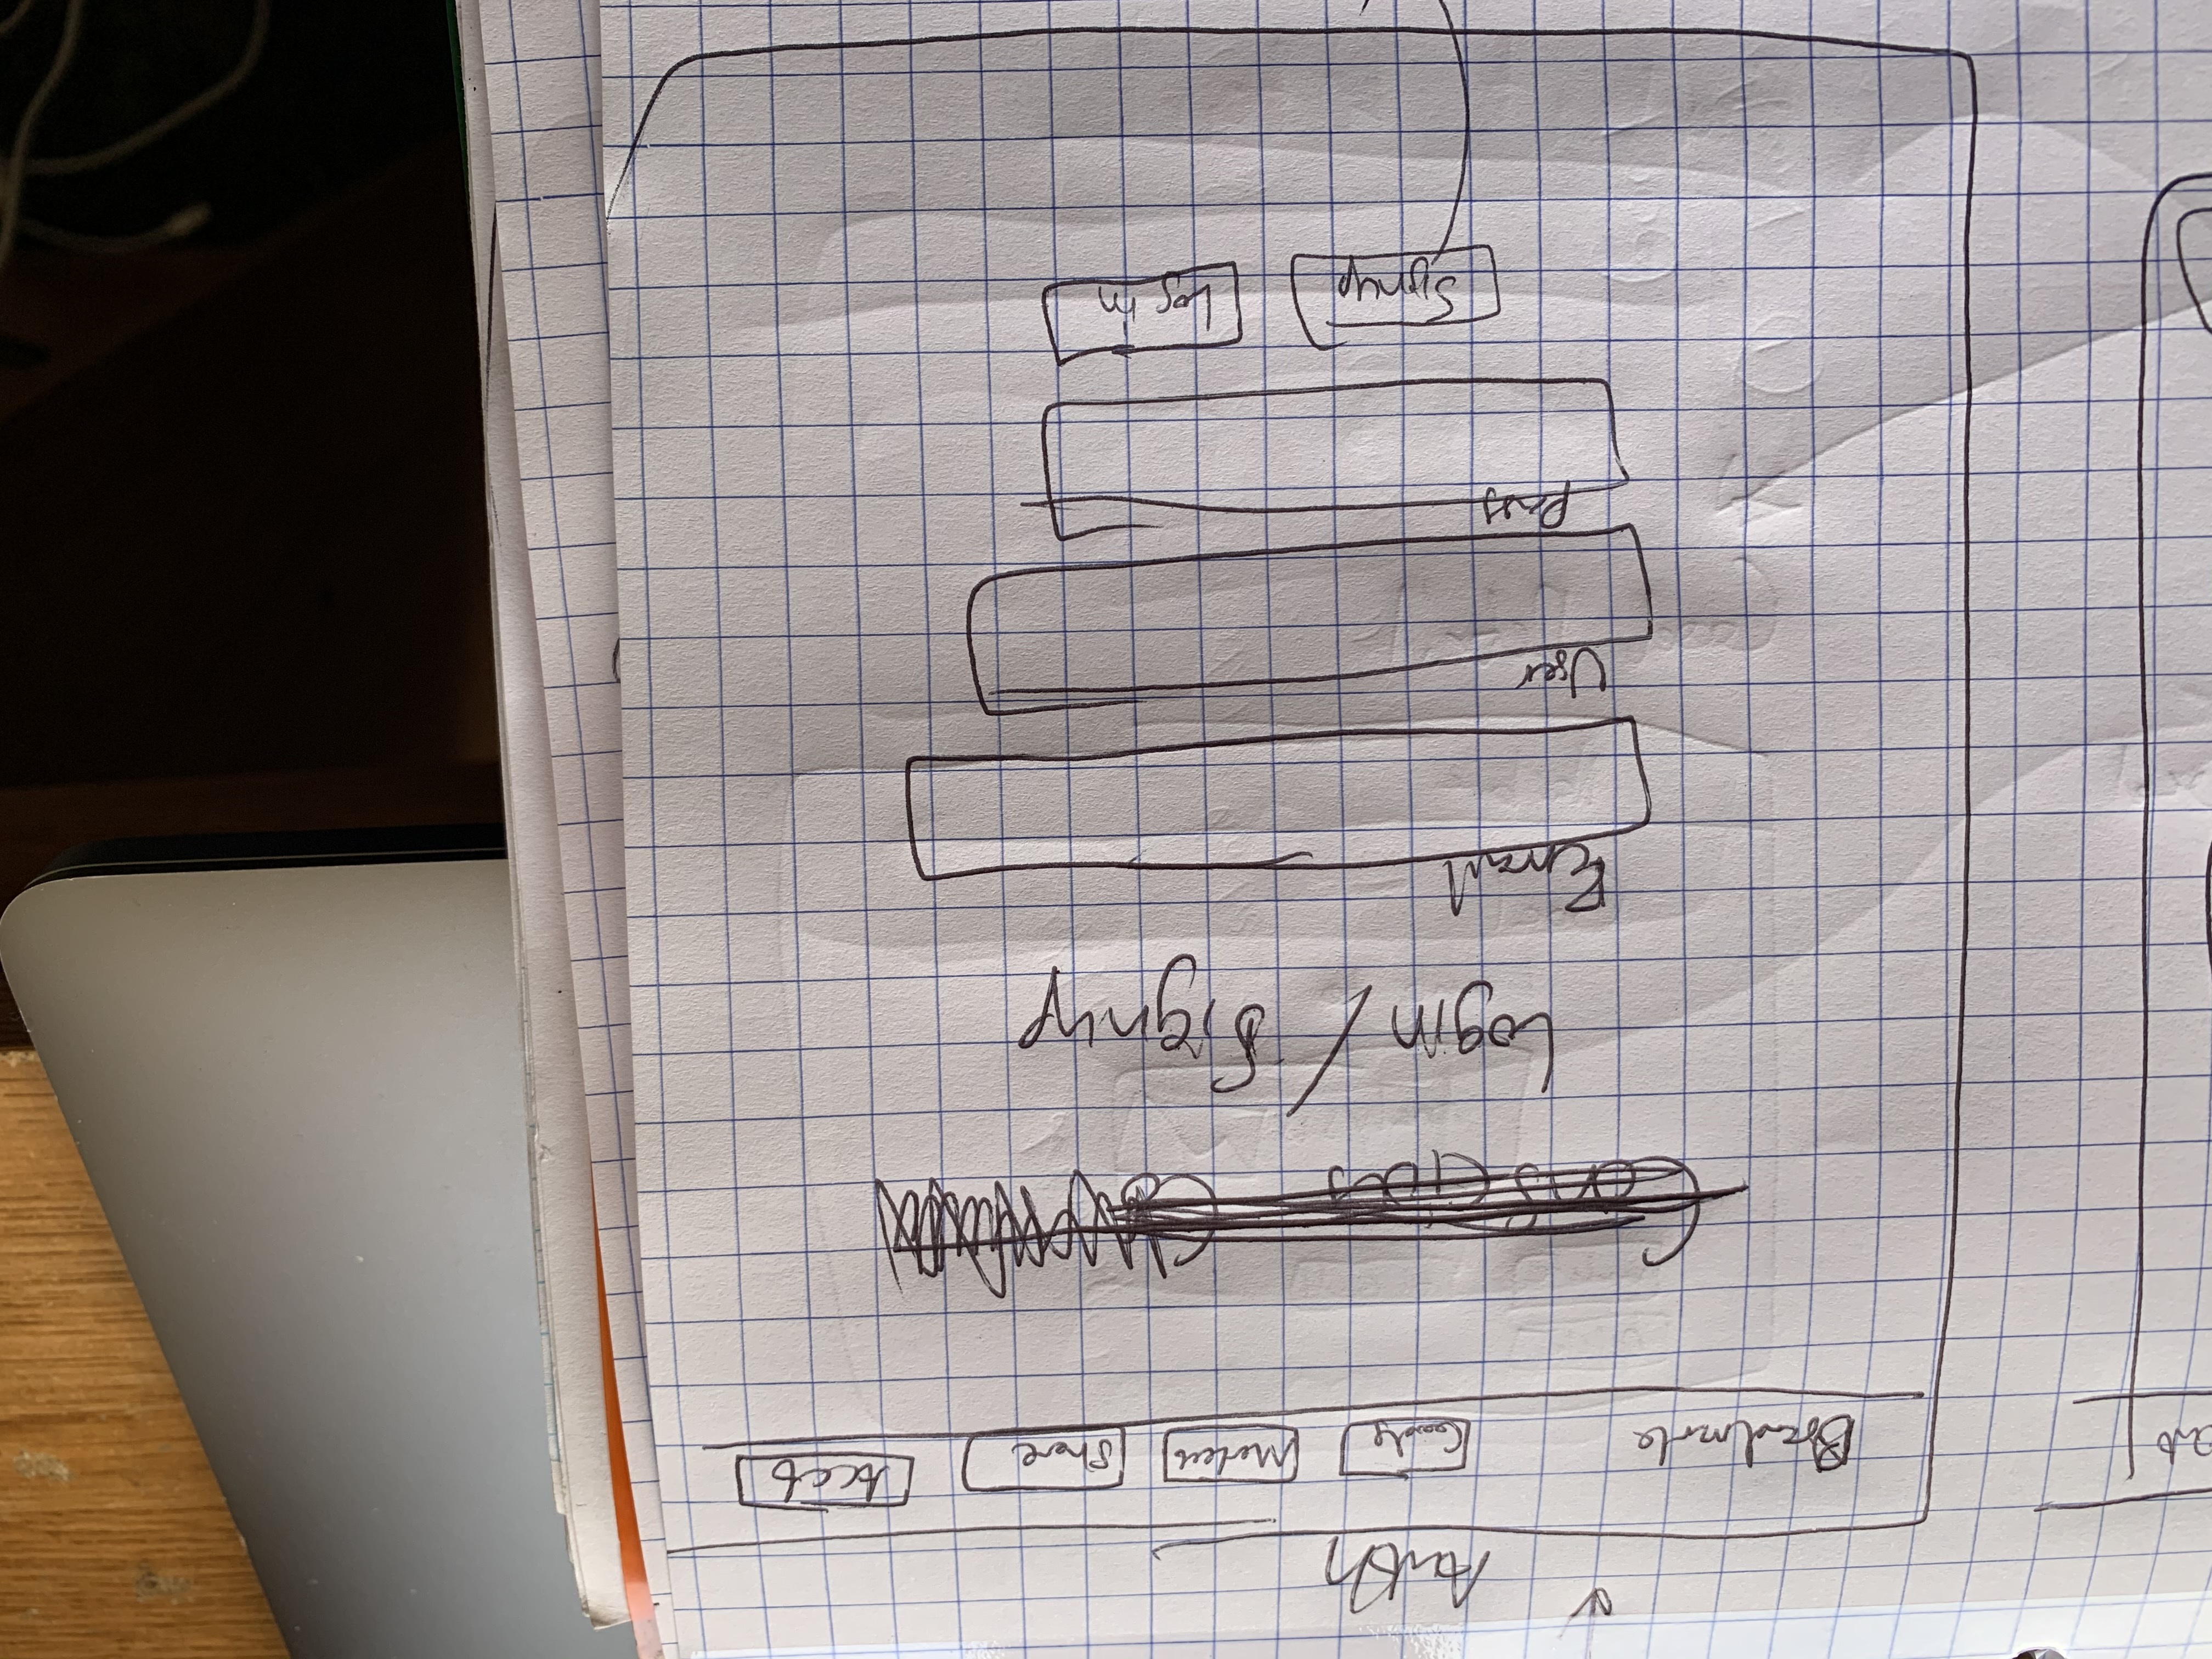 Auth
Brandmark Goods Market Share Acct
Conscious
Login / Signup
Email
User
Pass
Signup Log in